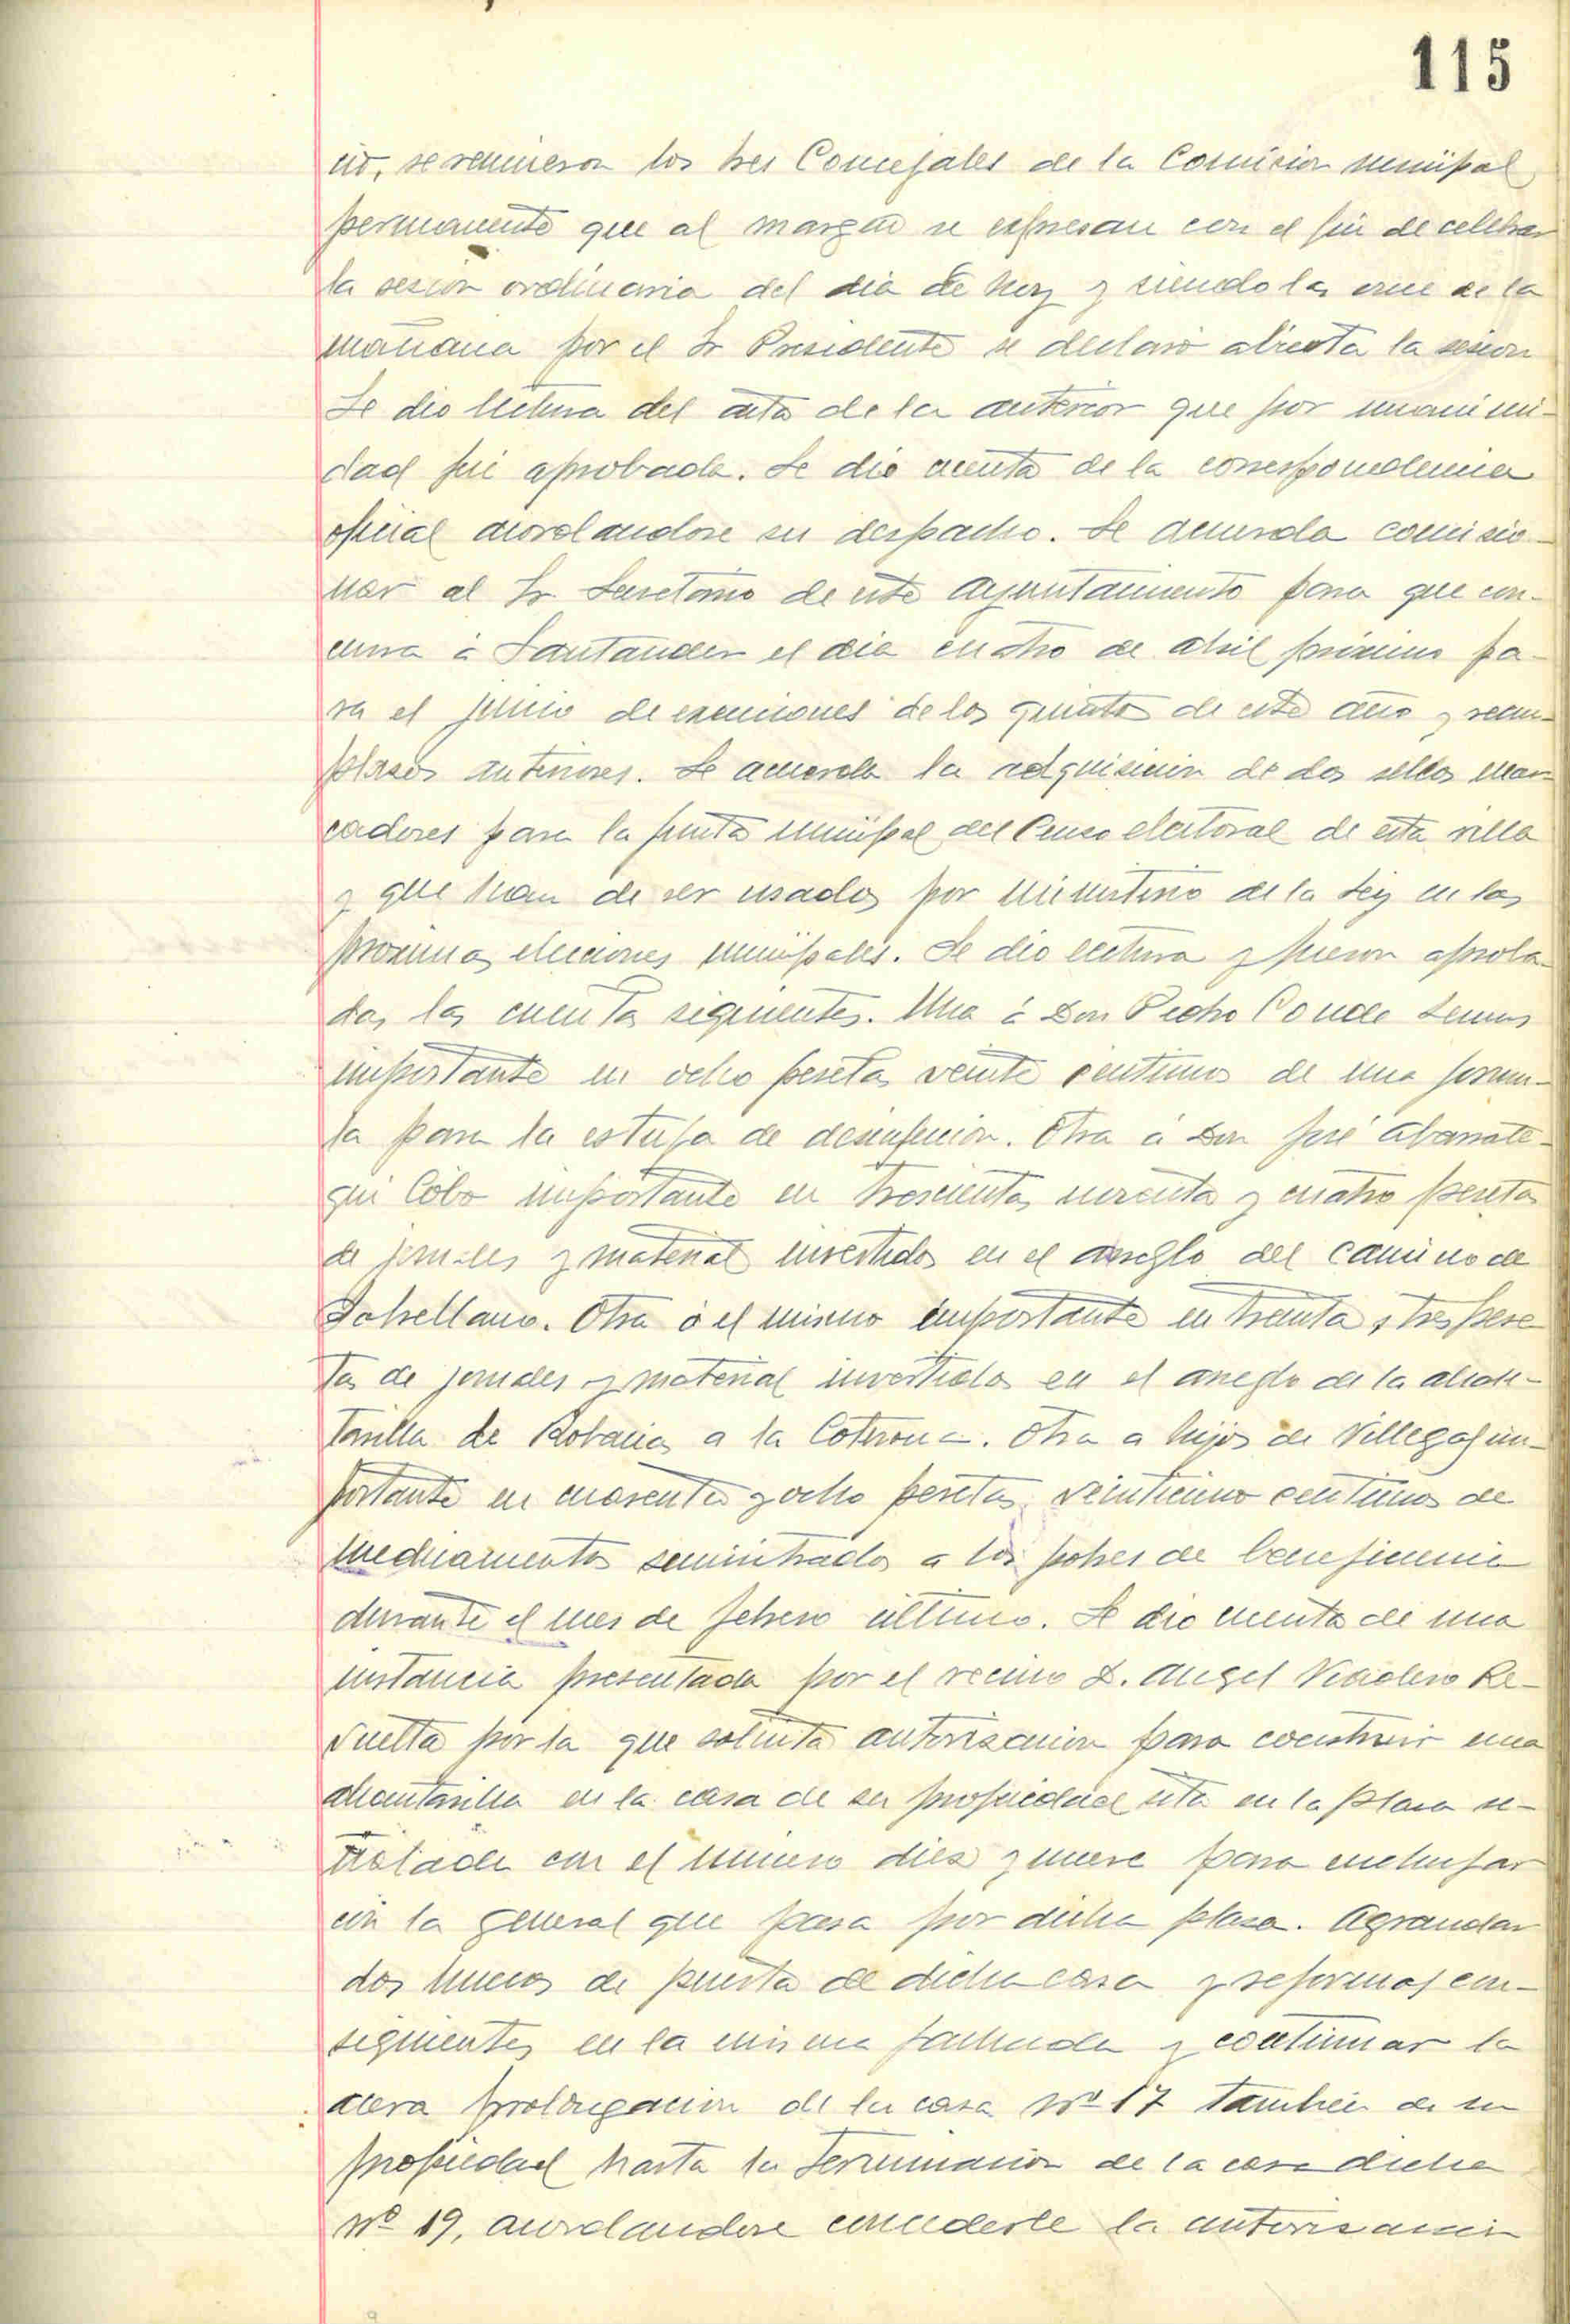 115
cio, se reunieron los tres Concejales de la Comision municipal
permanente que al margen se expresan con el fin de celebrar
la sesion ordinaria del dia de hoy y siendo las once de la
mañana por el Sr Presidente se declaró abierta la sesion
Se dio lectura del acta de la anterior que por unanimi-
dad fué aprobada. Se dio cuenta de la correspondencia
oficial acordandose su despacho. Se acuerda comisio-
nar al Sr Secretario de este Ayuntamiento para que con-
curra á Santander el dia cuatro de Abril próximo pa-
ra el juicio de exenciones de los quintos de este año y reem-
plazos anteriores. Se acuerda la adquisicion de dos sellos mar
cadores para la Junta municipal del Censo electoral de esta villa
y que han de ser usados por ministerio de la Ley en las
proximas elecciones municipales. Se dio lectura y fueron aproba-
das las cuentas siguientes. Una á Don Pedro Conde
importante en ocho pesetas veinte centimos de una
para la estufa de desinfeccion. Otra á Don José Abarrate-
gui Cobo importante en trescientas y cuatro pesetas
de jornales y material invertidos en el arreglo del camino de
Sobrellano. Otra á el mismo importante en treinta y tres pese
tas de jornales y material invertidos en el arreglo de la alcan-
tarilla de Robacias a la Coterona. Otra a hijos de Villegas im-
portante en cuarenta y ocho pesetas veintiuno centimos de
medicamentos suministrados a los pobres de beneficencia
durante el mes de febrero último. Se dio cuenta de una
instancia presentada por el vecino D. Angel Viadero Re-
vuelta por la que solicita autorizacion para construir una
alcantarilla en la casa de su propiedad sita en la plaza se-
ñalada con el numero diez y nueve para enchufar
con la general que pasa por dicha plaza. Agrandar
dos huecos de puerta de dicha casa y reformas con-
siguientes en la misma fachada y continuar la
acera prolongacion de la casa nº 17 tambien de su
propiedad hasta la terminacion de la casa dicha
nº 19, acordandose concederle la autorizacion